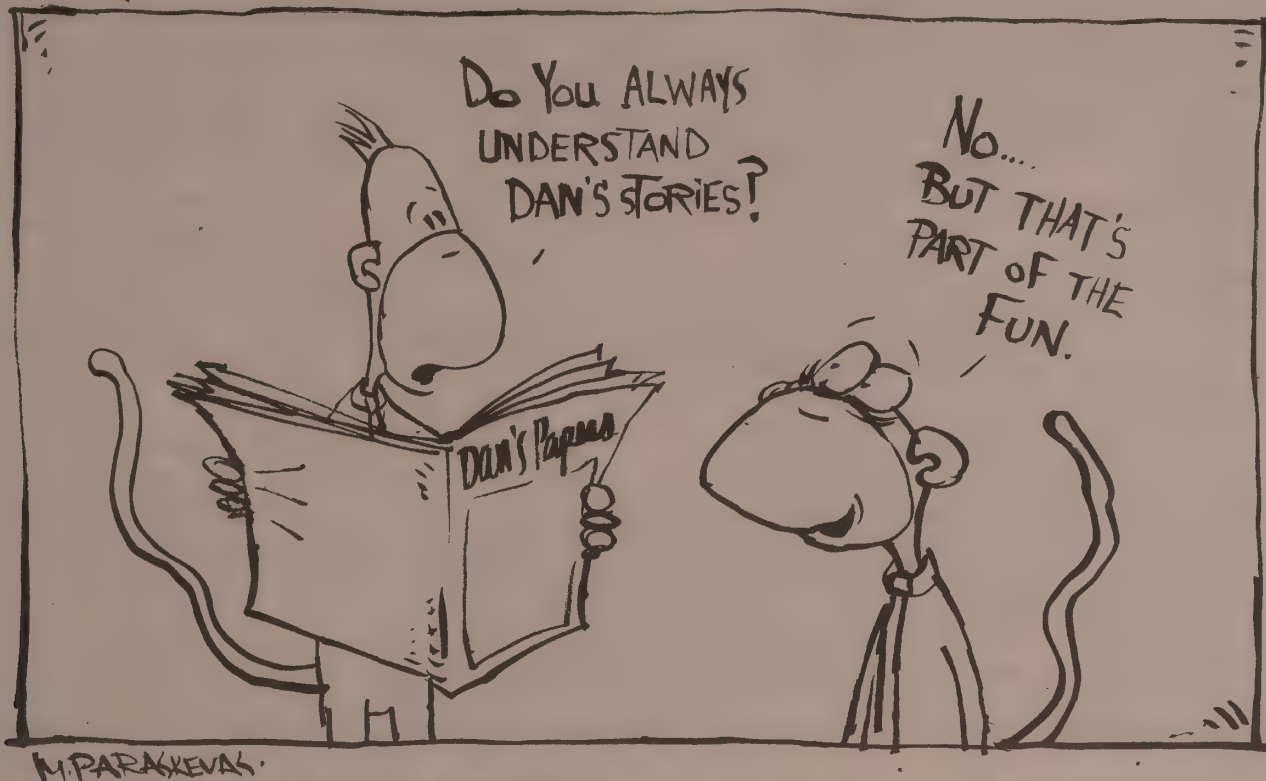 Do You ALWAYS
UNDERSTAND
DAN'S STORIES?
No....
BUT THAT'S
PART OF THE
FUN.
Dan's Papers
M. PARASKEVAS.